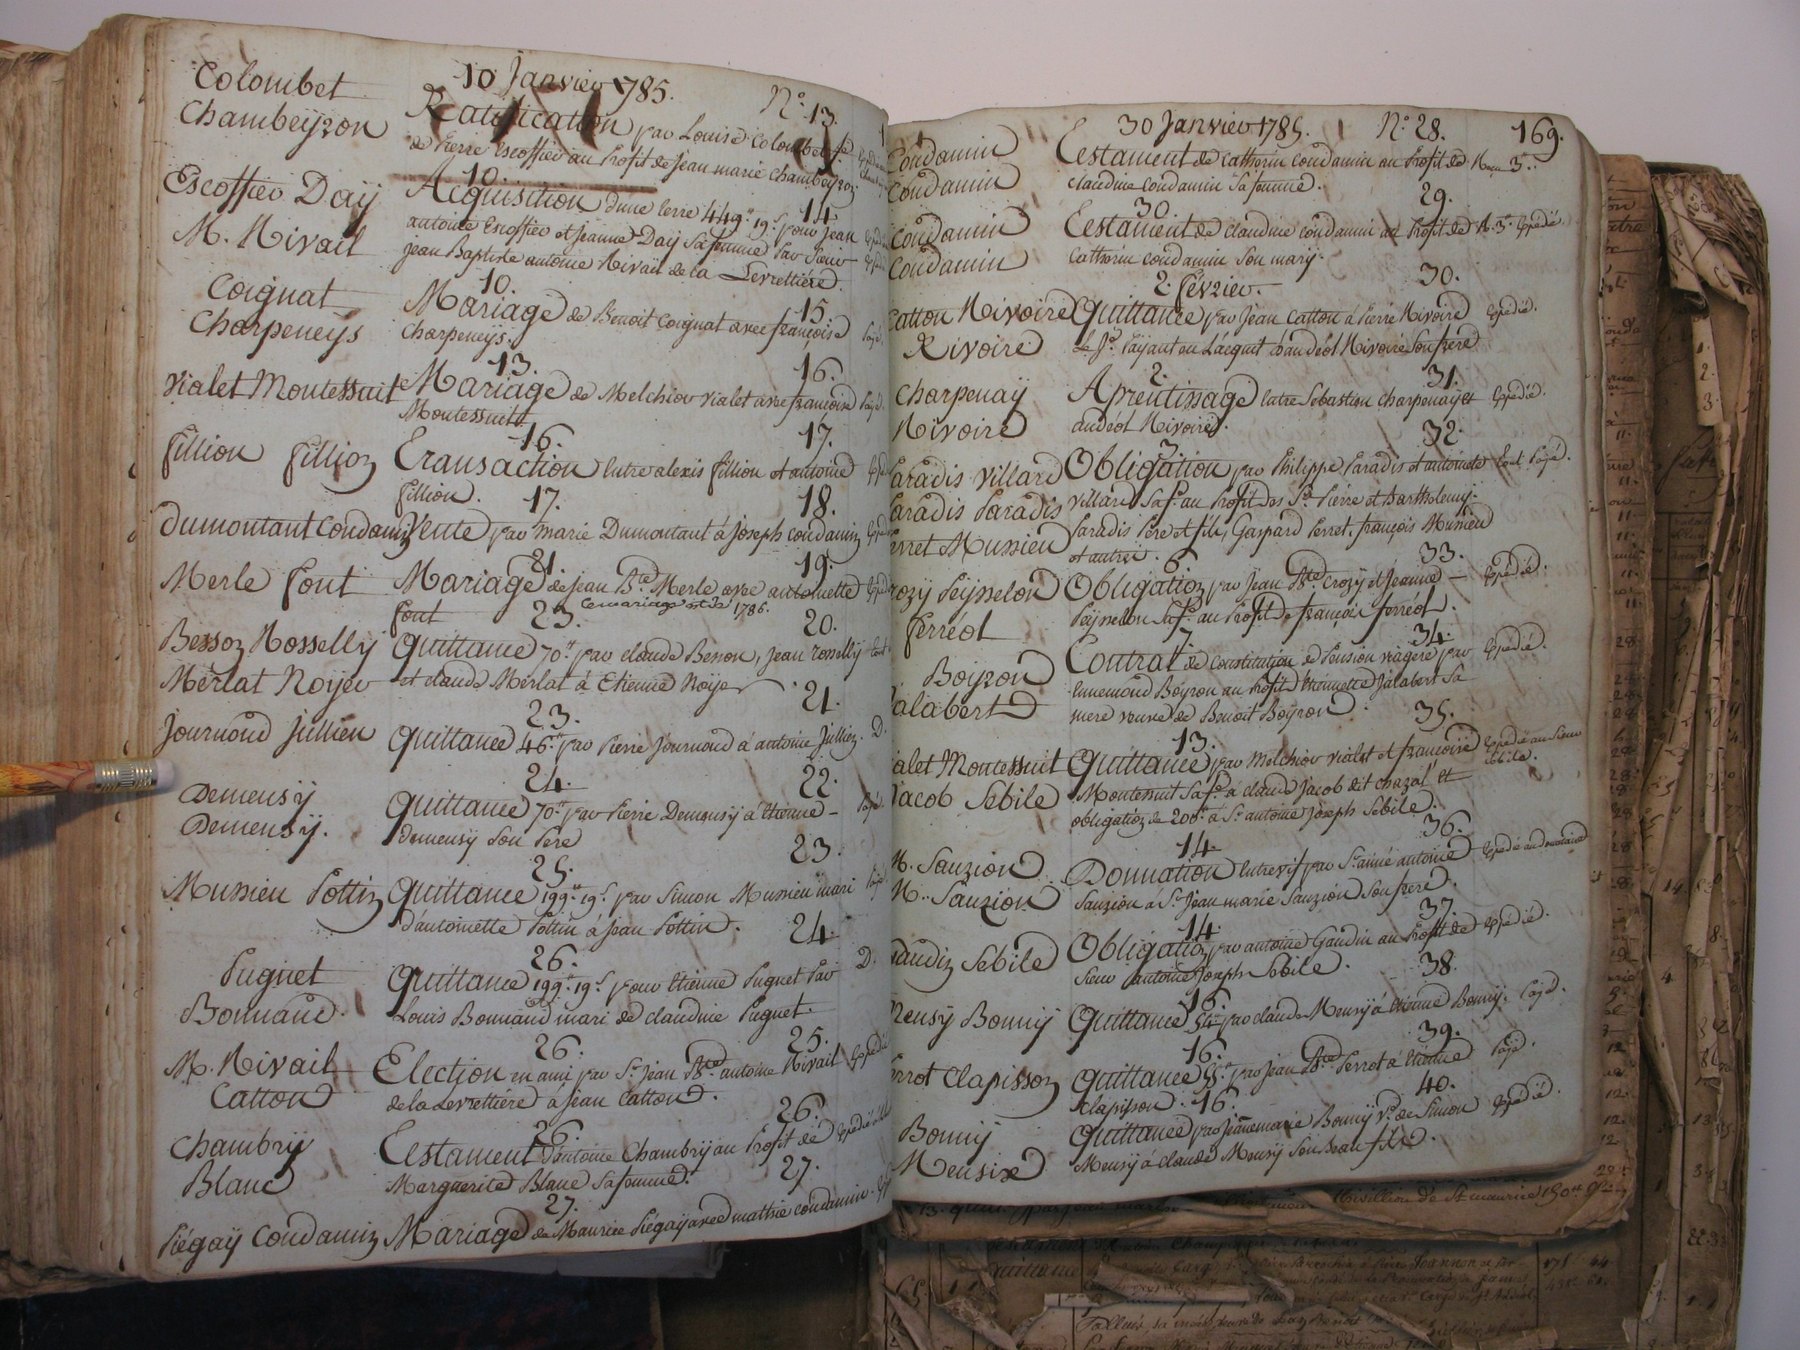 10 Janvier 1785. N.° 13.
Colombet
Chambeÿron
Ratification par Louise Colombet fe
de Pierre Escoffier au Profit de Jean marie Chambeyron
10. 14
Escoffier Daÿ
M. Rivail
Acquisition d'une terre 449# 19s pour Jean
antoine Escoffier et Jeanne Daÿ Sa femme Par Sieur
Jean Baptiste antoine Rivail de la Levrettiére.
10. 15.
Coignat
Charpeneÿs
Mariage de Benoit Coignat avec françoise
Charpeneÿs.
13. 16.
Vialet Montessuit
Mariage de Melchior vialet avec françoise Payé.
Montessuit
16. 17.
fillion fillion
Transaction Entre alexis fillion et antoine
fillion.
17. 18.
Dumontant Condamin
Vente par marie Dumontant à Joseph Condamin
21. 19.
Merle font
Mariage de Jean Bte Merle avec antoinette
font Ce mariage est de 1786.
23. 20.
Besson Rosselly
Merlat Noÿer
Quittance 70# par claude Besson, Jean rosselly
et claude Merlat à Etienne Noÿer
23. 21.
Journoud Jullien
Quittance 46# par Pierre Journoud à antoine Jullien. D.
24. 22.
Demeusÿ
Demeusÿ.
Quittance 70# par Pierre Demeusÿ à Etienne
demeusy Son Pere
25. 23.
Mussieu Pottin
Quittance 199# 19s par Simon Mussieu mari
d'antoinette Pottin à Jean Pottin.
26. 24
Pugnet
Bonnand.
Quittance 199# 19s pour Etienne Pugnet Par D.
Louis Bonnand mari de claudine Pugnet.
26. 25.
M. Rivail
Catton
Election en ami par Sr Jean Bte antoine Rivail Expédié
de la Levrettiere à Jean Catton.
26. 26.
Chambrÿ
Blanc
Testament d'antoine Chambrÿ au Profit de
Marguerite Blanc Sa femme.
27. 27.
Piégaÿ Condamin
Mariage de Maurice Piégaÿ avec mathie condamine.
30 Janvier 1785. N.° 28. 169.
Condamin
Condamin
Testament de Catherin Condamin au Profit de
claudine Condamin Sa femme.
30. 29.
Condamin
Condamin
Testament de claudine condamin au Profit de Expédié.
Catherin condamin Son mary.
2. février. 30.
Catton Rivoire
Rivoire
Quittance par Jean Catton à Pierre Rivoire Expédié.
Le Sr. Payant en L'acquit d'andéol Rivoire Son frere
2. 31.
Charpenaÿ
Rivoire
Aprentissage Entre Sébastien Charpenaÿ et Expédié.
andéol Rivoire.
3. 32.
Paradis Villard
Paradis Paradis
Perret Mussieu
Obligation par Philippe Paradis et antoinete tout Payé.
Villard Sa fe au Profit des Srs Pierre et Barthelemÿ
Paradis Pere et fils, Gaspard Perret. françois Mussieu
et autre.
6 33.
Crozy Peysselon
ferréol
Obligation par Jean Bte Crozy et Jeanne Expédié.
Peysselon Sa fe au Profit de françois ferréol.
7 34.
Boÿron
Jalabert
Contrat de Constitution de Pension viagere par Expédié.
Ennemond Boÿron au Profit d'Etiennette Jalabert Sa
mere veuve de Benoit Boÿron
13. 35.
Vialet Montessuit
Jacob Sebile
Quittance par Melchior vialet et françoise Expédié au Sieur
Sebile.
Montessuit Sa fe à claude Jacob dit chazal et
obligation de 200# à Sr. antoine Joseph Sebile.
14. 36.
M. Sauzion
M. Sauzion
Donnation Entrevif par Sr aimé antoine Expédié au donataire
Sauzion à Sr. Jean marie Sauzion Son frere.
14. 37
Gaudin Sebile
Obligation par antoine Gaudin au Profit de Expédié.
Sieur antoine Joseph Sebile.
16. 38.
Meusy Bonnÿ
Quittance 54# par claude Meusÿ à Etienne Bonnÿ. Payé.
16. 39.
Perrot Clapisson
Quittance 55# par Jean Bte Perrot à Etienne Payé.
Clapisson.
16. 40.
Bonnÿ
Meusixe
Quittance par Jeanne marie Bonnÿ ve. de Simon Expédié.
Meusÿ à claude Meusy Son Beau fils.